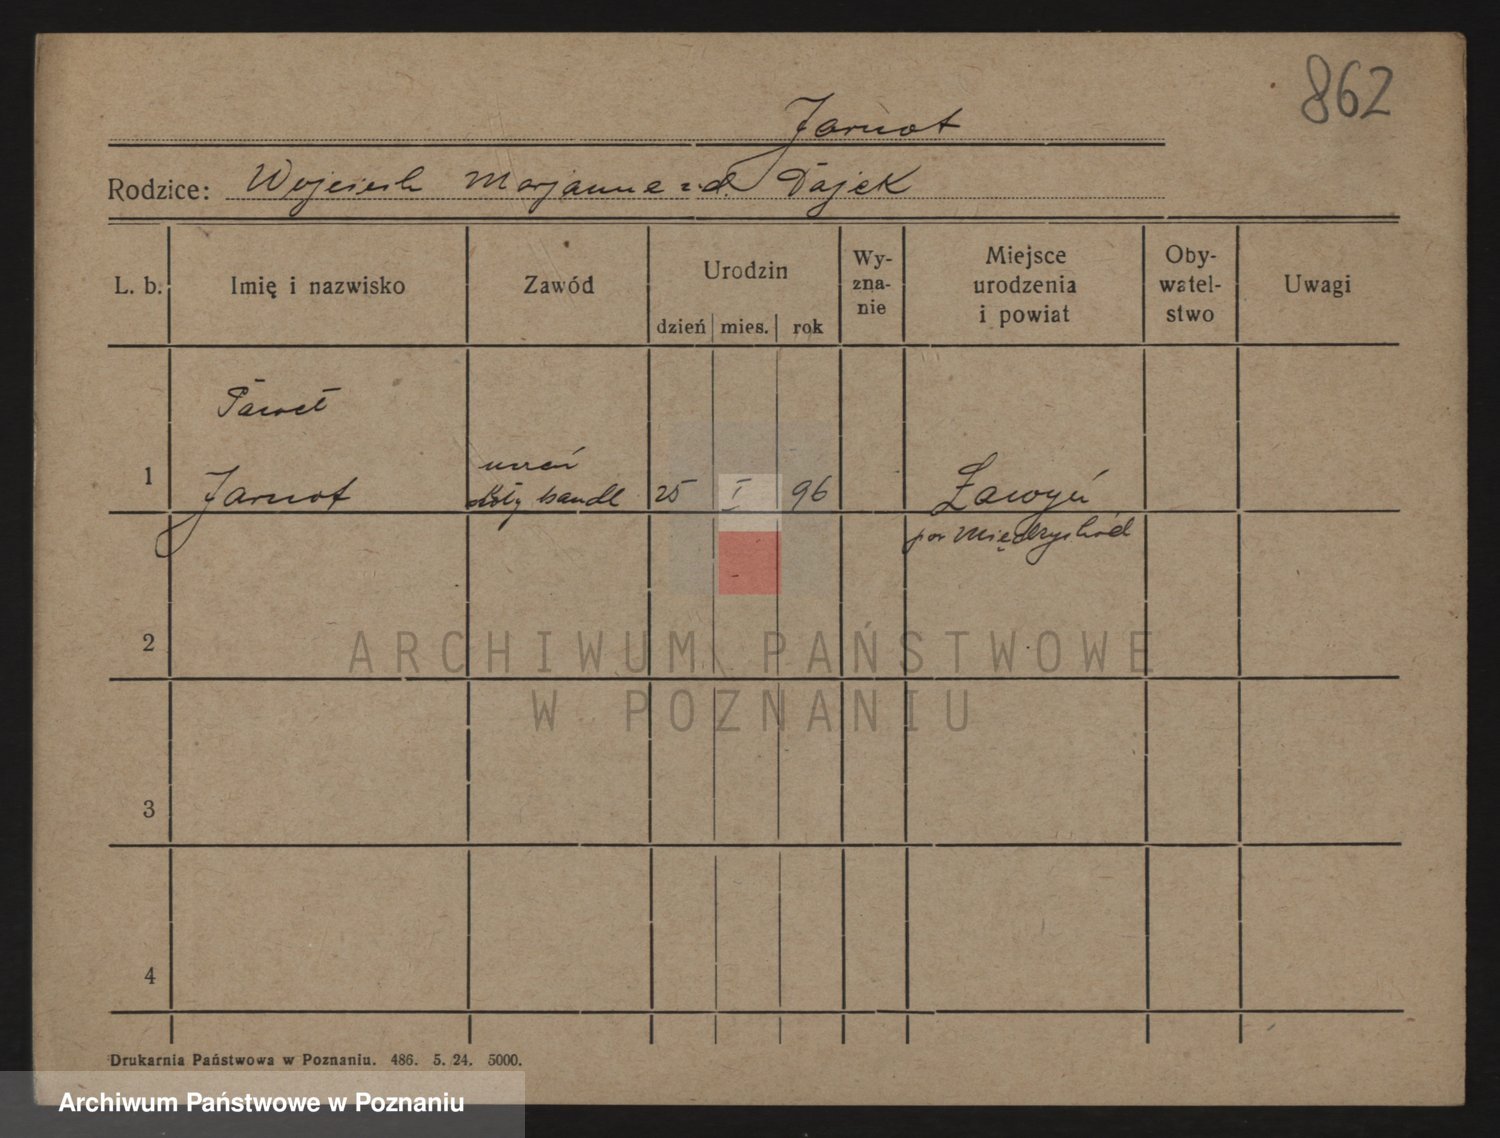 862
Jarnot
Rodzice: Wojciech Marjanna z d. Dajek
L. b. Imię i nazwisko Zawód Urodzin dzień mies. rok Wy-zna-nie Miejsce urodzenia i powiat Oby-watel-stwo Uwagi
Paweł
1 Jarnot uczeń szkoły handl 25 I 96 Ławyń
pow Międzychód
2
ARCHIWUM PAŃSTWOWE
W POZNANIU
3
4
Drukarnia Państwowa w Poznaniu. 486. 5. 24. 5000.
Archiwum Państwowe w Poznaniu